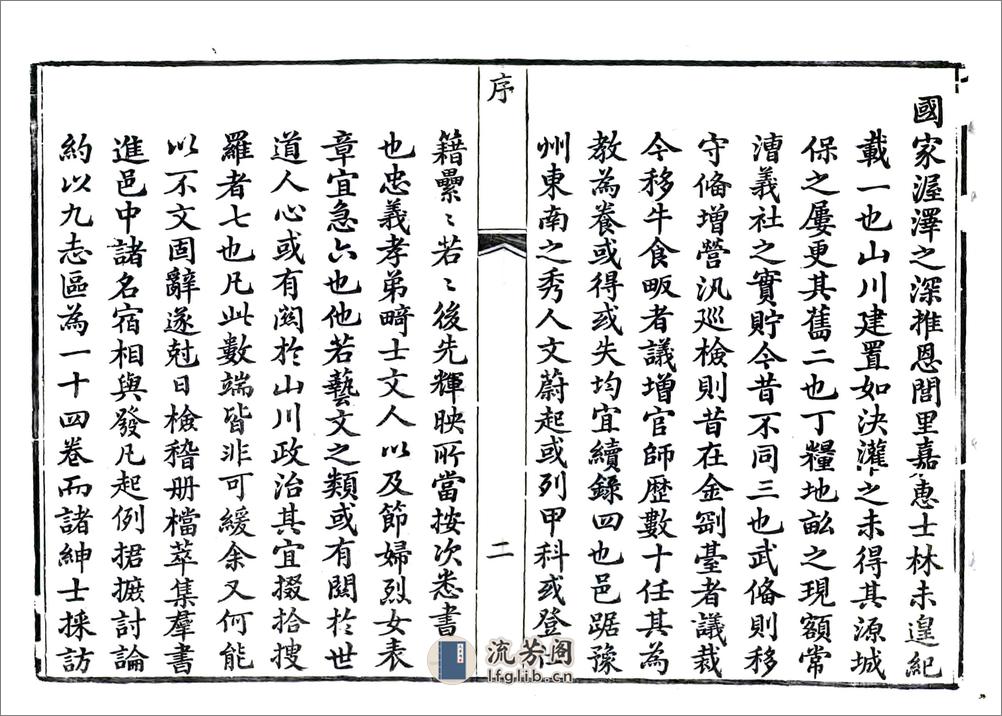 國家渥澤之深推恩閭里嘉惠士林未遑紀
載一也山川建置如決灌之未得其源城
保之屢更其舊二也丁糧地畝之現額常
漕義社之實貯今昔不同三也武俻則移
守俻增營汛廵檢則昔在金剅臺者議裁
今移牛食畈者議增官師歷數十任其為
教為養或得或失均宜續錄四也邑踞豫
州東南之秀人文蔚起或列甲科或登
序
二
籍纍〻若〻後先輝映所當按次悉書
也忠義孝弟畸士文人以及節婦烈女表
章宜急六也他若藝文之類或有関於世
道人心或有関於山川政治其宜掇拾搜
羅者七也凡此數端皆非可緩余又何能
以不文固辭遂尅日檢稽册檔萃集羣書
進邑中諸名宿相與發凡起例捃摭討論
約以九志區為一十四卷而諸紳士採訪
流芳阁
lfglib.cn